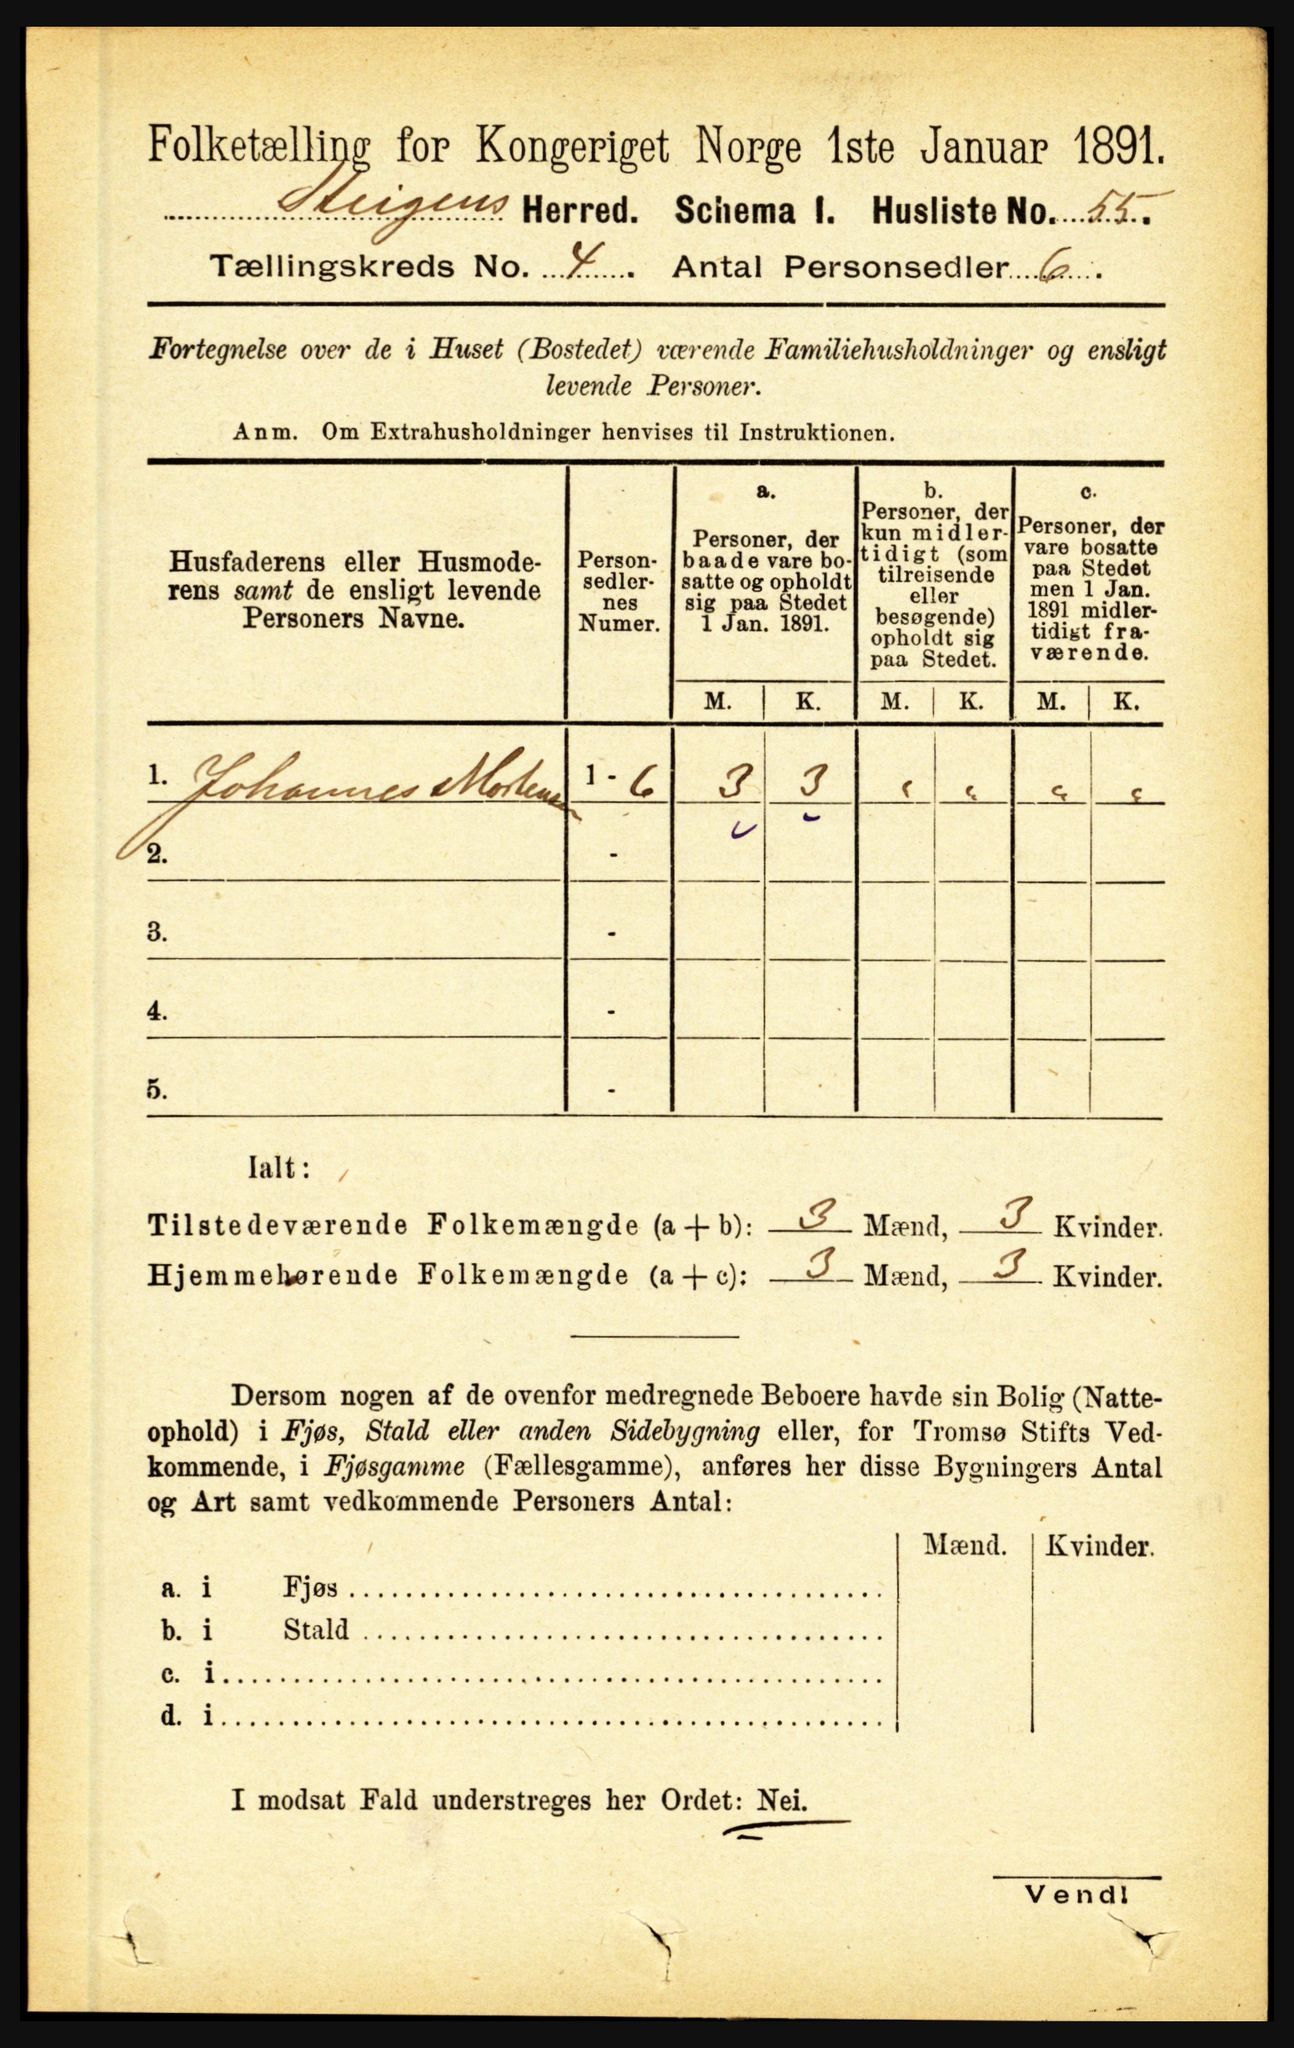 Folketælling for Kongeriget Norge 1ste Januar 1891.
Steigens Herred. Schema I. Husliste No. 55.
Tællingskreds No. 4. Antal Personsedler 6.
Fortegnelse over de i Huset (Bostedet) værende Familiehusholdninger og ensligt
levende Personer.
Anm. Om Extrahusholdninger henvises til Instruktionen.
Husfaderens eller Husmode-
rens samt de ensligt levende
Personers Navne.
Person-
sedler-
nes
Numer.
a.
Personer, der
baade vare bo-
satte og opholdt
sig paa Stedet
1 Jan. 1891.
b.
Personer, der
kun midler-
tidigt (som
tilreisende
eller
besøgende)
opholdt sig
paa Stedet.
c.
Personer, der
vare bosatte
paa Stedet
men 1 Jan.
1891 midler-
tidigt fra-
værende.
M. K. M. K. M. K.
1. Johannes Mortensen 1 - 6 3 3 " " " "
2. -
3. -
4. -
5. -
Ialt:
Tilstedeværende Folkemængde (a + b): 3 Mænd, 3 Kvinder.
Hjemmehørende Folkemængde (a + c): 3 Mænd, 3 Kvinder.
Dersom nogen af de ovenfor medregnede Beboere havde sin Bolig (Natte-
ophold) i Fjøs, Stald eller anden Sidebygning eller, for Tromsø Stifts Ved-
kommende, i Fjøsgamme (Fællesgamme), anføres her disse Bygningers Antal
og Art samt vedkommende Personers Antal:
Mænd. Kvinder.
a. i Fjøs
b. i Stald
c. i
d. i
I modsat Fald understreges her Ordet: Nei.
Vend!